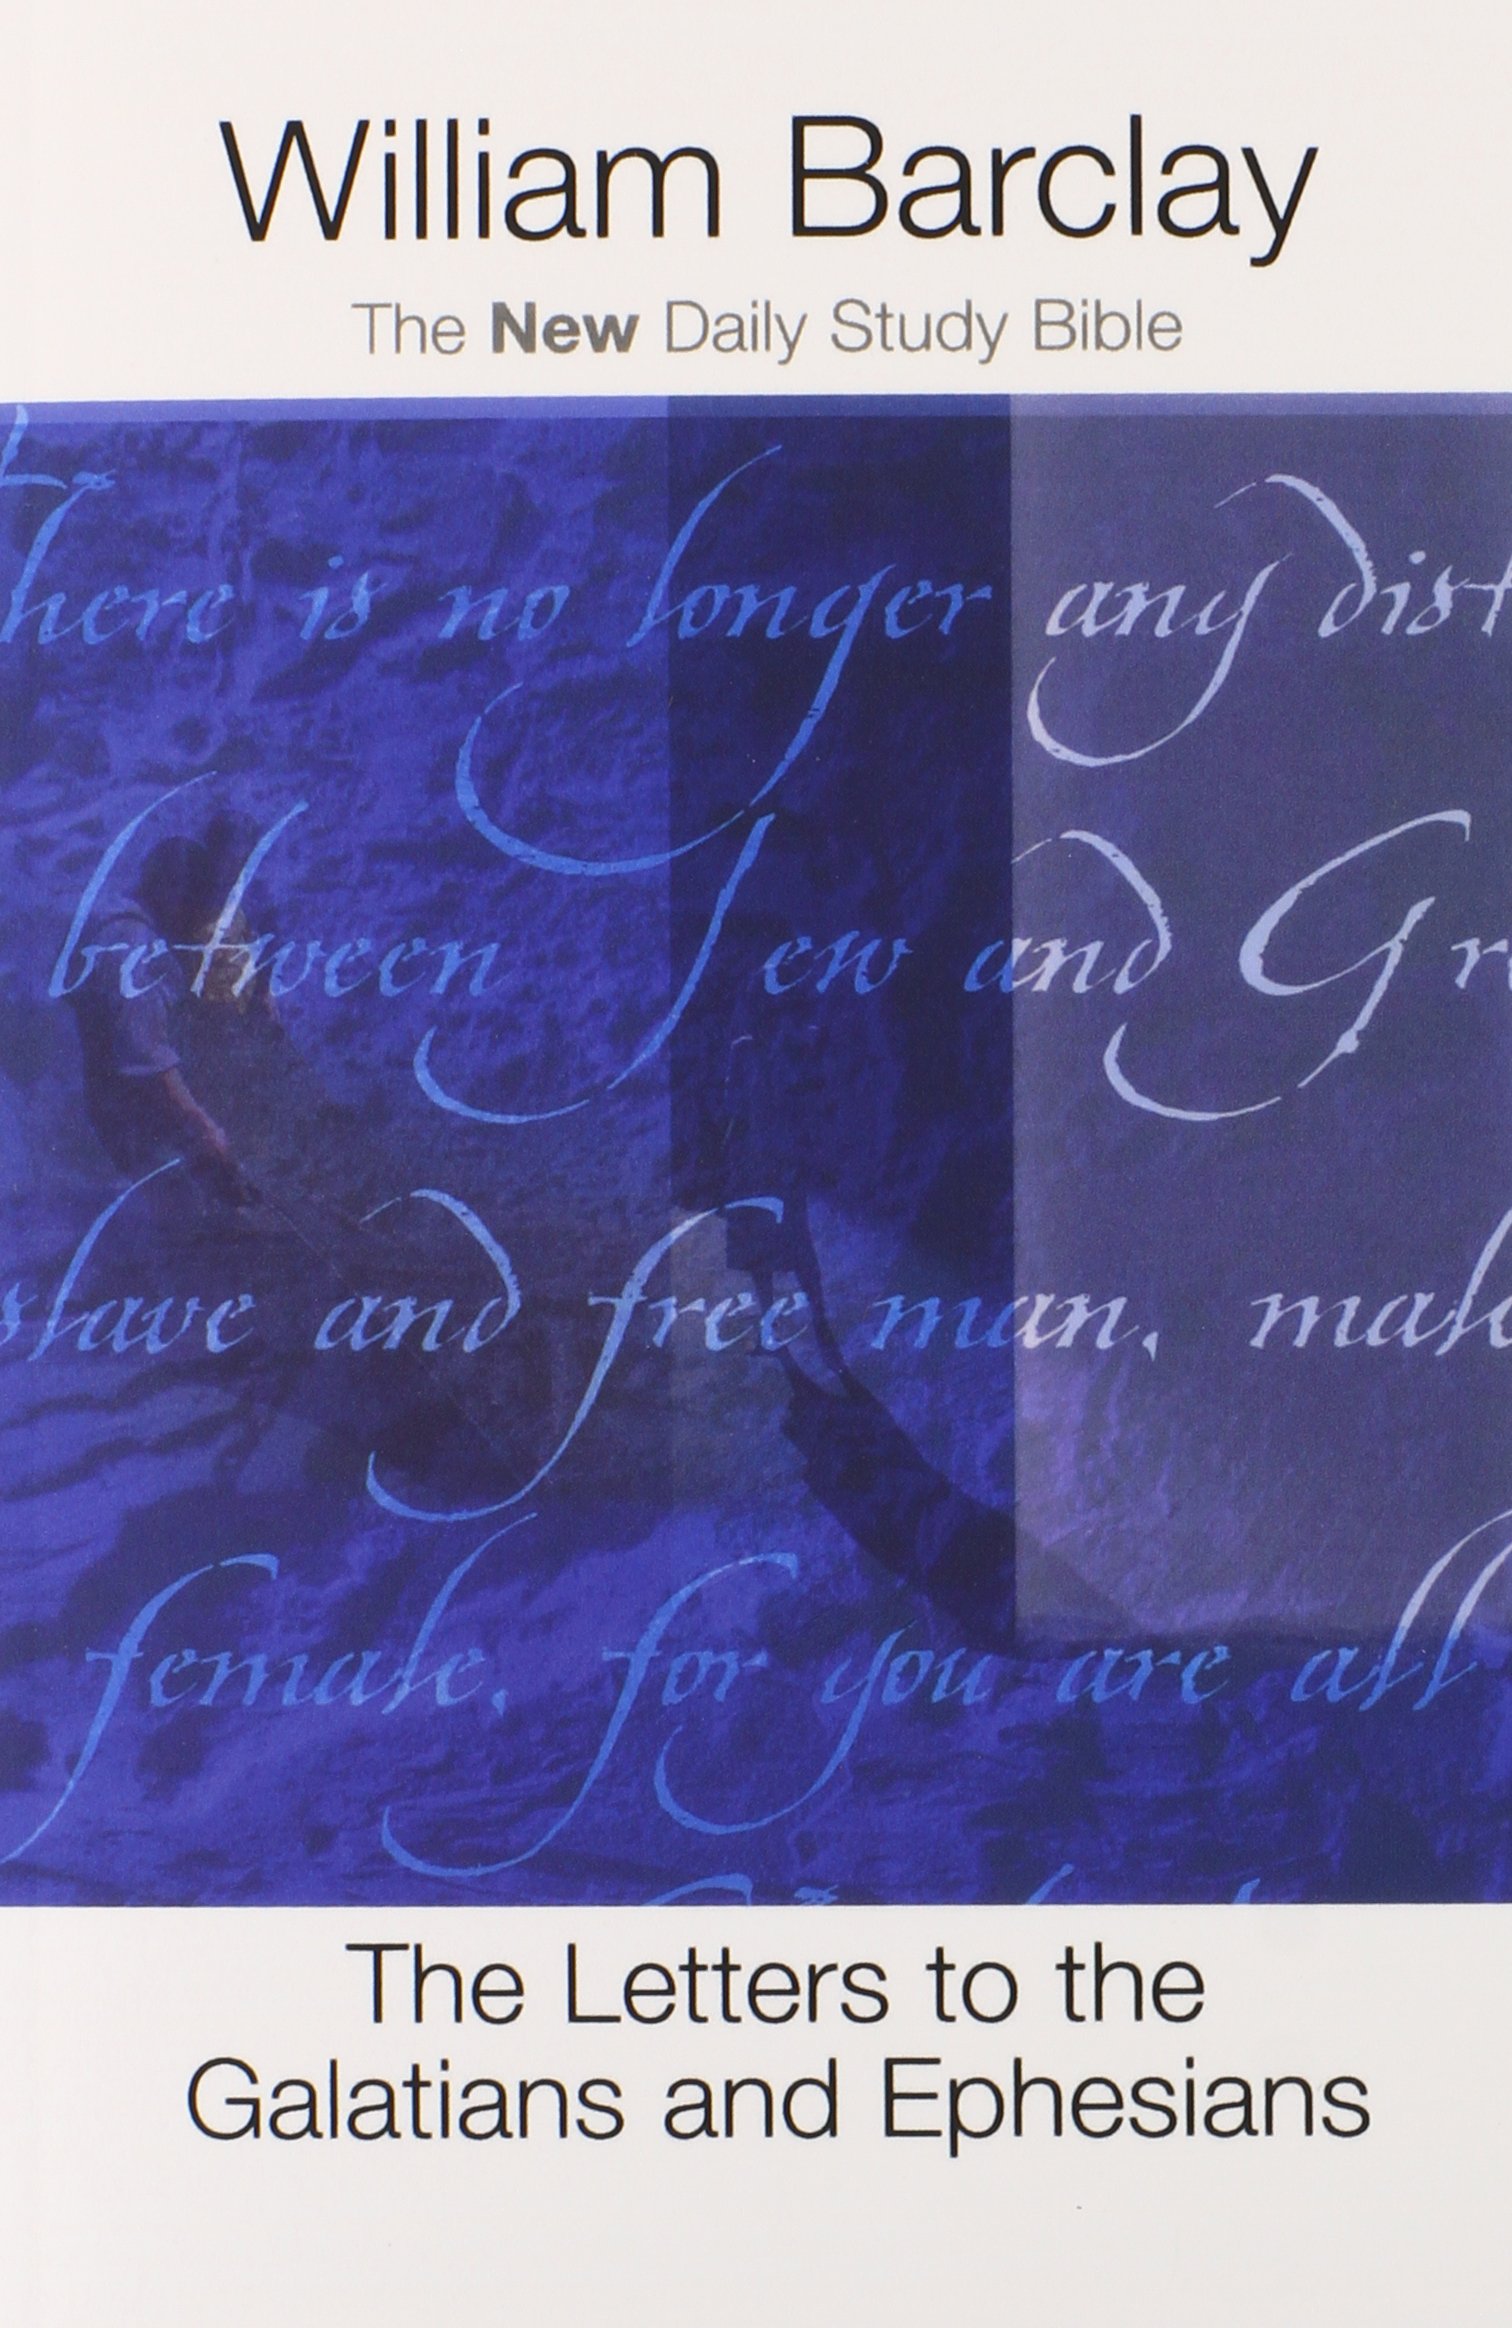 William Barclay
The New Daily Study Bible
there is no longer any dist
between Jew and Gre
slave and free man, male
female, for you are all
The Letters to the
Galatians and Ephesians